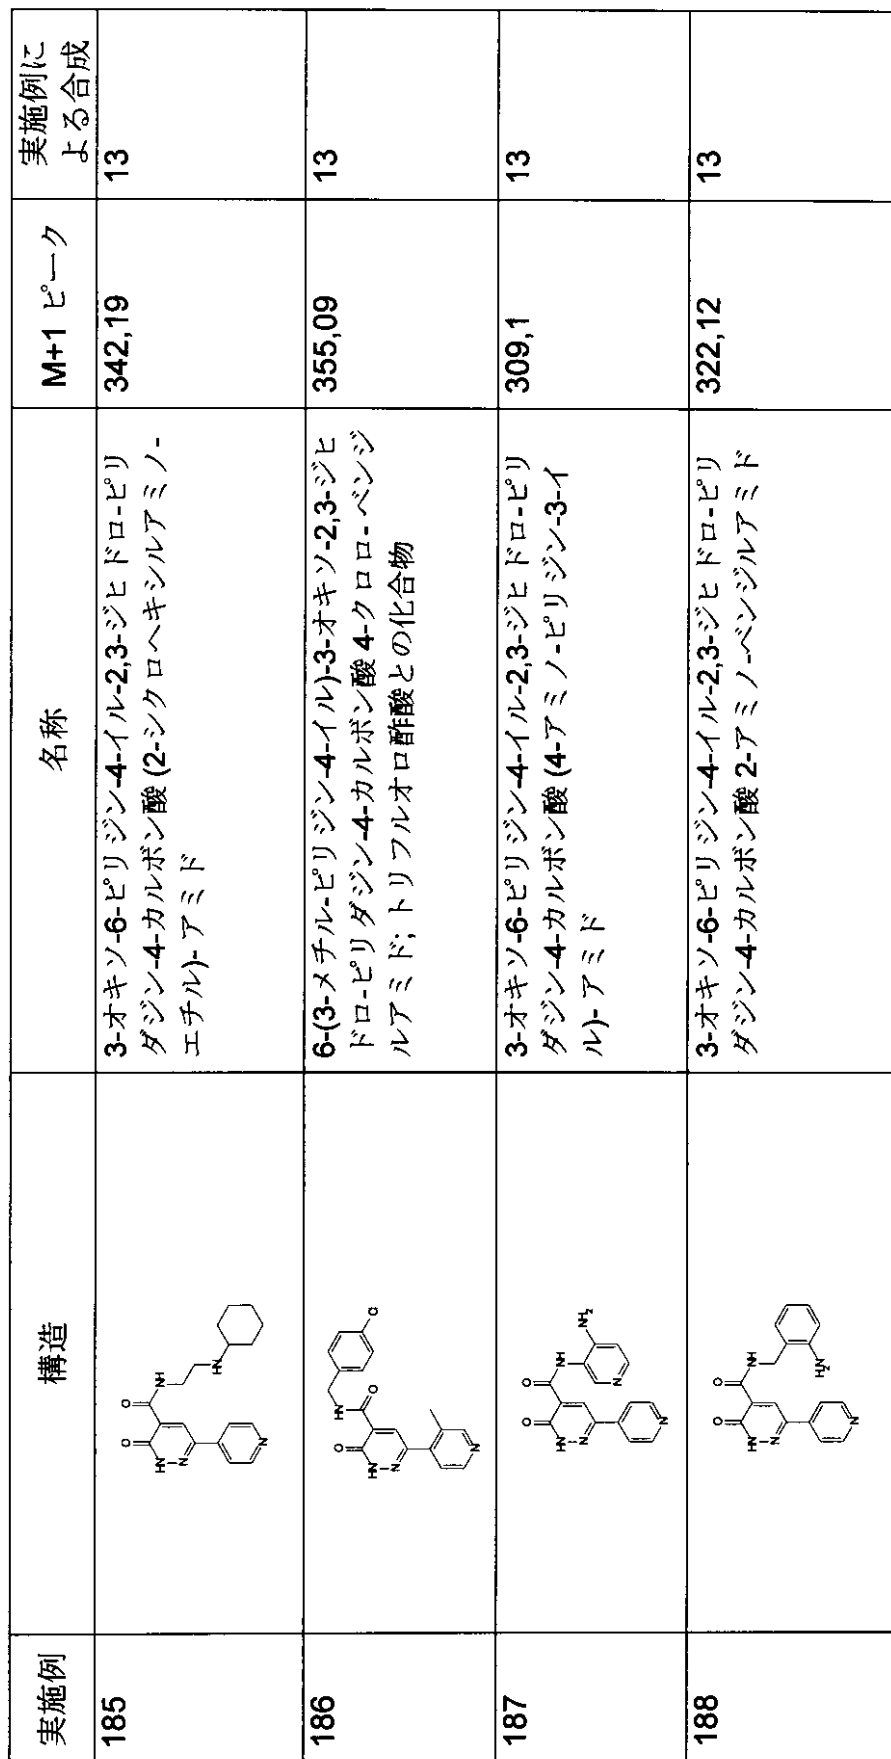 実施例
構造
名称
M+1 ピーク
実施例に
よる合成
185
O
O
NH
NH
NH
N
N
3-オキソ-6-ピリジン-4-イル-2,3-ジヒドロ-ピリ
ダジン-4-カルボン酸 (2-シクロヘキシルアミノ-
エチル)- アミド
342,19
13
186
NH
O
O
Cl
NH
N
N
6-(3-メチル-ピリジン-4-イル)-3-オキソ-2,3-ジヒ
ドロ-ピリダジン-4-カルボン酸 4-クロロ- ベンジ
ルアミド; トリフルオロ酢酸との化合物
355,09
13
187
O
O
NH
NH₂
N
NH
N
N
3-オキソ-6-ピリジン-4-イル-2,3-ジヒドロ-ピリ
ダジン-4-カルボン酸 (4-アミノ-ピリジン-3-イ
ル)- アミド
309,1
13
188
O
O
NH
NH₂
NH
N
N
3-オキソ-6-ピリジン-4-イル-2,3-ジヒドロ-ピリ
ダジン-4-カルボン酸 2-アミノ-ベンジルアミド
322,12
13